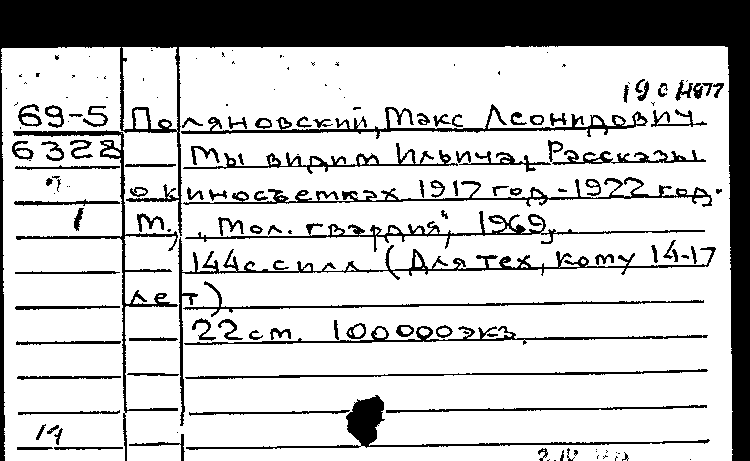 19 с 4877
69-5 Поляновский, Макс Леонидович.
6328 Мы видим Ильича, Рассказы
о киносъемках 1917 год.-1922 год.
1 М., „Мол. гвардия“, 1969,.
144с.силл (Для тех, кому 14-17
лет).
22см. 100000экз.
19